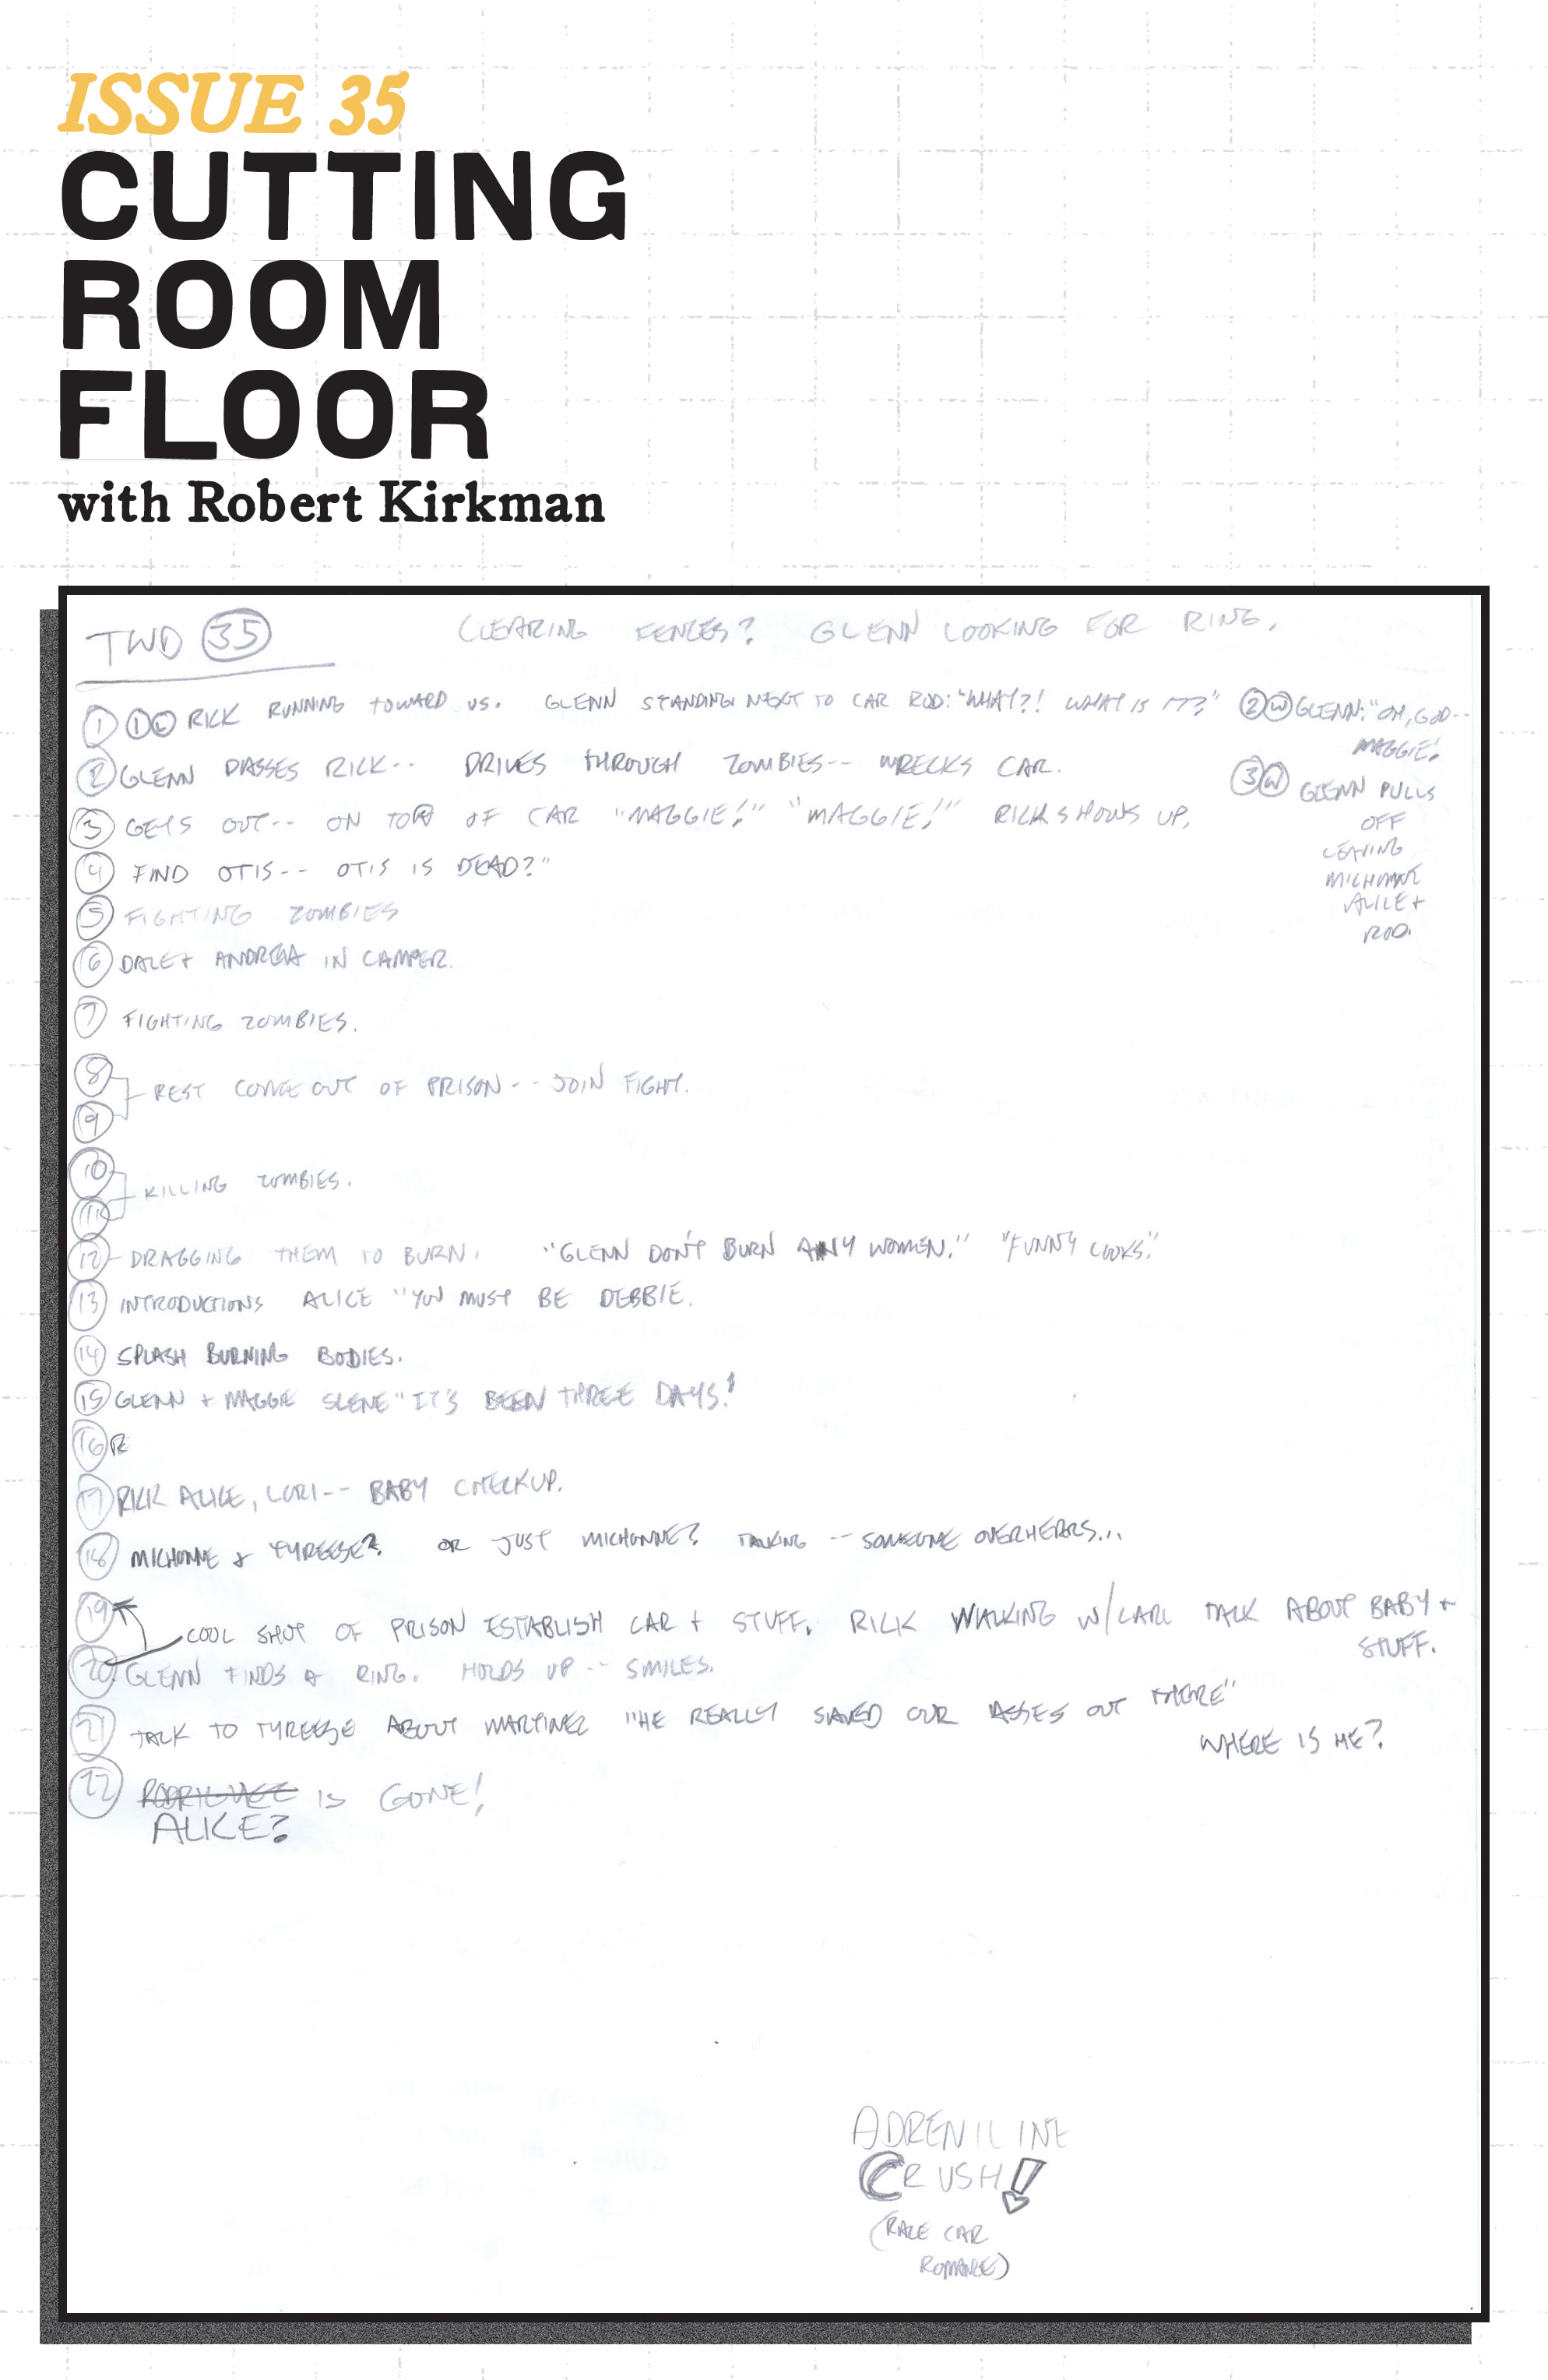 ISSUE 35
CUTTING
ROOM
FLOOR
with Robert Kirkman
TWD 35 CLEARING FENCES? GLENN LOOKING FOR RING.
1 1 W RICK RUNNING TOWARD US. GLENN STANDING NEXT TO CAR ROD: "WHAT?! WHAT IS IT?" 2 W GLENN: "OH, GOD--
MAGGIE!
2 GLENN PASSES RICK-- DRIVES THROUGH ZOMBIES-- WRECKS CAR.
3 W GLENN PULLS
OFF
LEAVING
MICHONNE
ALICE +
ROD.
3 GETS OUT-- ON TOP OF CAR "MAGGIE!" "MAGGIE!" RICK SHOWS UP.
4 FIND OTIS-- OTIS IS DEAD?"
5 FIGHTING ZOMBIES
6 DALE + ANDREA IN CAMPER.
7 FIGHTING ZOMBIES.
8
9 REST COME OUT OF PRISON-- JOIN FIGHT.
10
11 KILLING ZOMBIES.
12 DRAGGING THEM TO BURN. "GLENN DON'T BURN ANY WOMEN." "FUNNY LOOKS."
13 INTRODUCTIONS ALICE "YOU MUST BE DEBBIE.
14 SPLASH BURNING BODIES.
15 GLENN + MAGGIE SCENE "IT'S BEEN THREE DAYS!
16 R
17 RICK ALICE, LORI-- BABY CHECKUP.
18 MICHONNE & TYREESE? OR JUST MICHONNE? TALKING -- SOMEONE OVERHEARS...
19 COOL SHOT OF PRISON ESTABLISH CAR + STUFF. RICK WALKING W/CARL TALK ABOUT BABY +
STUFF.
20 GLENN FINDS A RING. HOLDS UP-- SMILES.
21 TALK TO TYREESE ABOUT MARTINEZ "HE REALLY SAVED OUR ASSES OUT THERE"
WHERE IS HE?
22 IS GONE!
ALICE?
ADRENILINE
CRUSH!
(RACE CAR
ROMANCE)